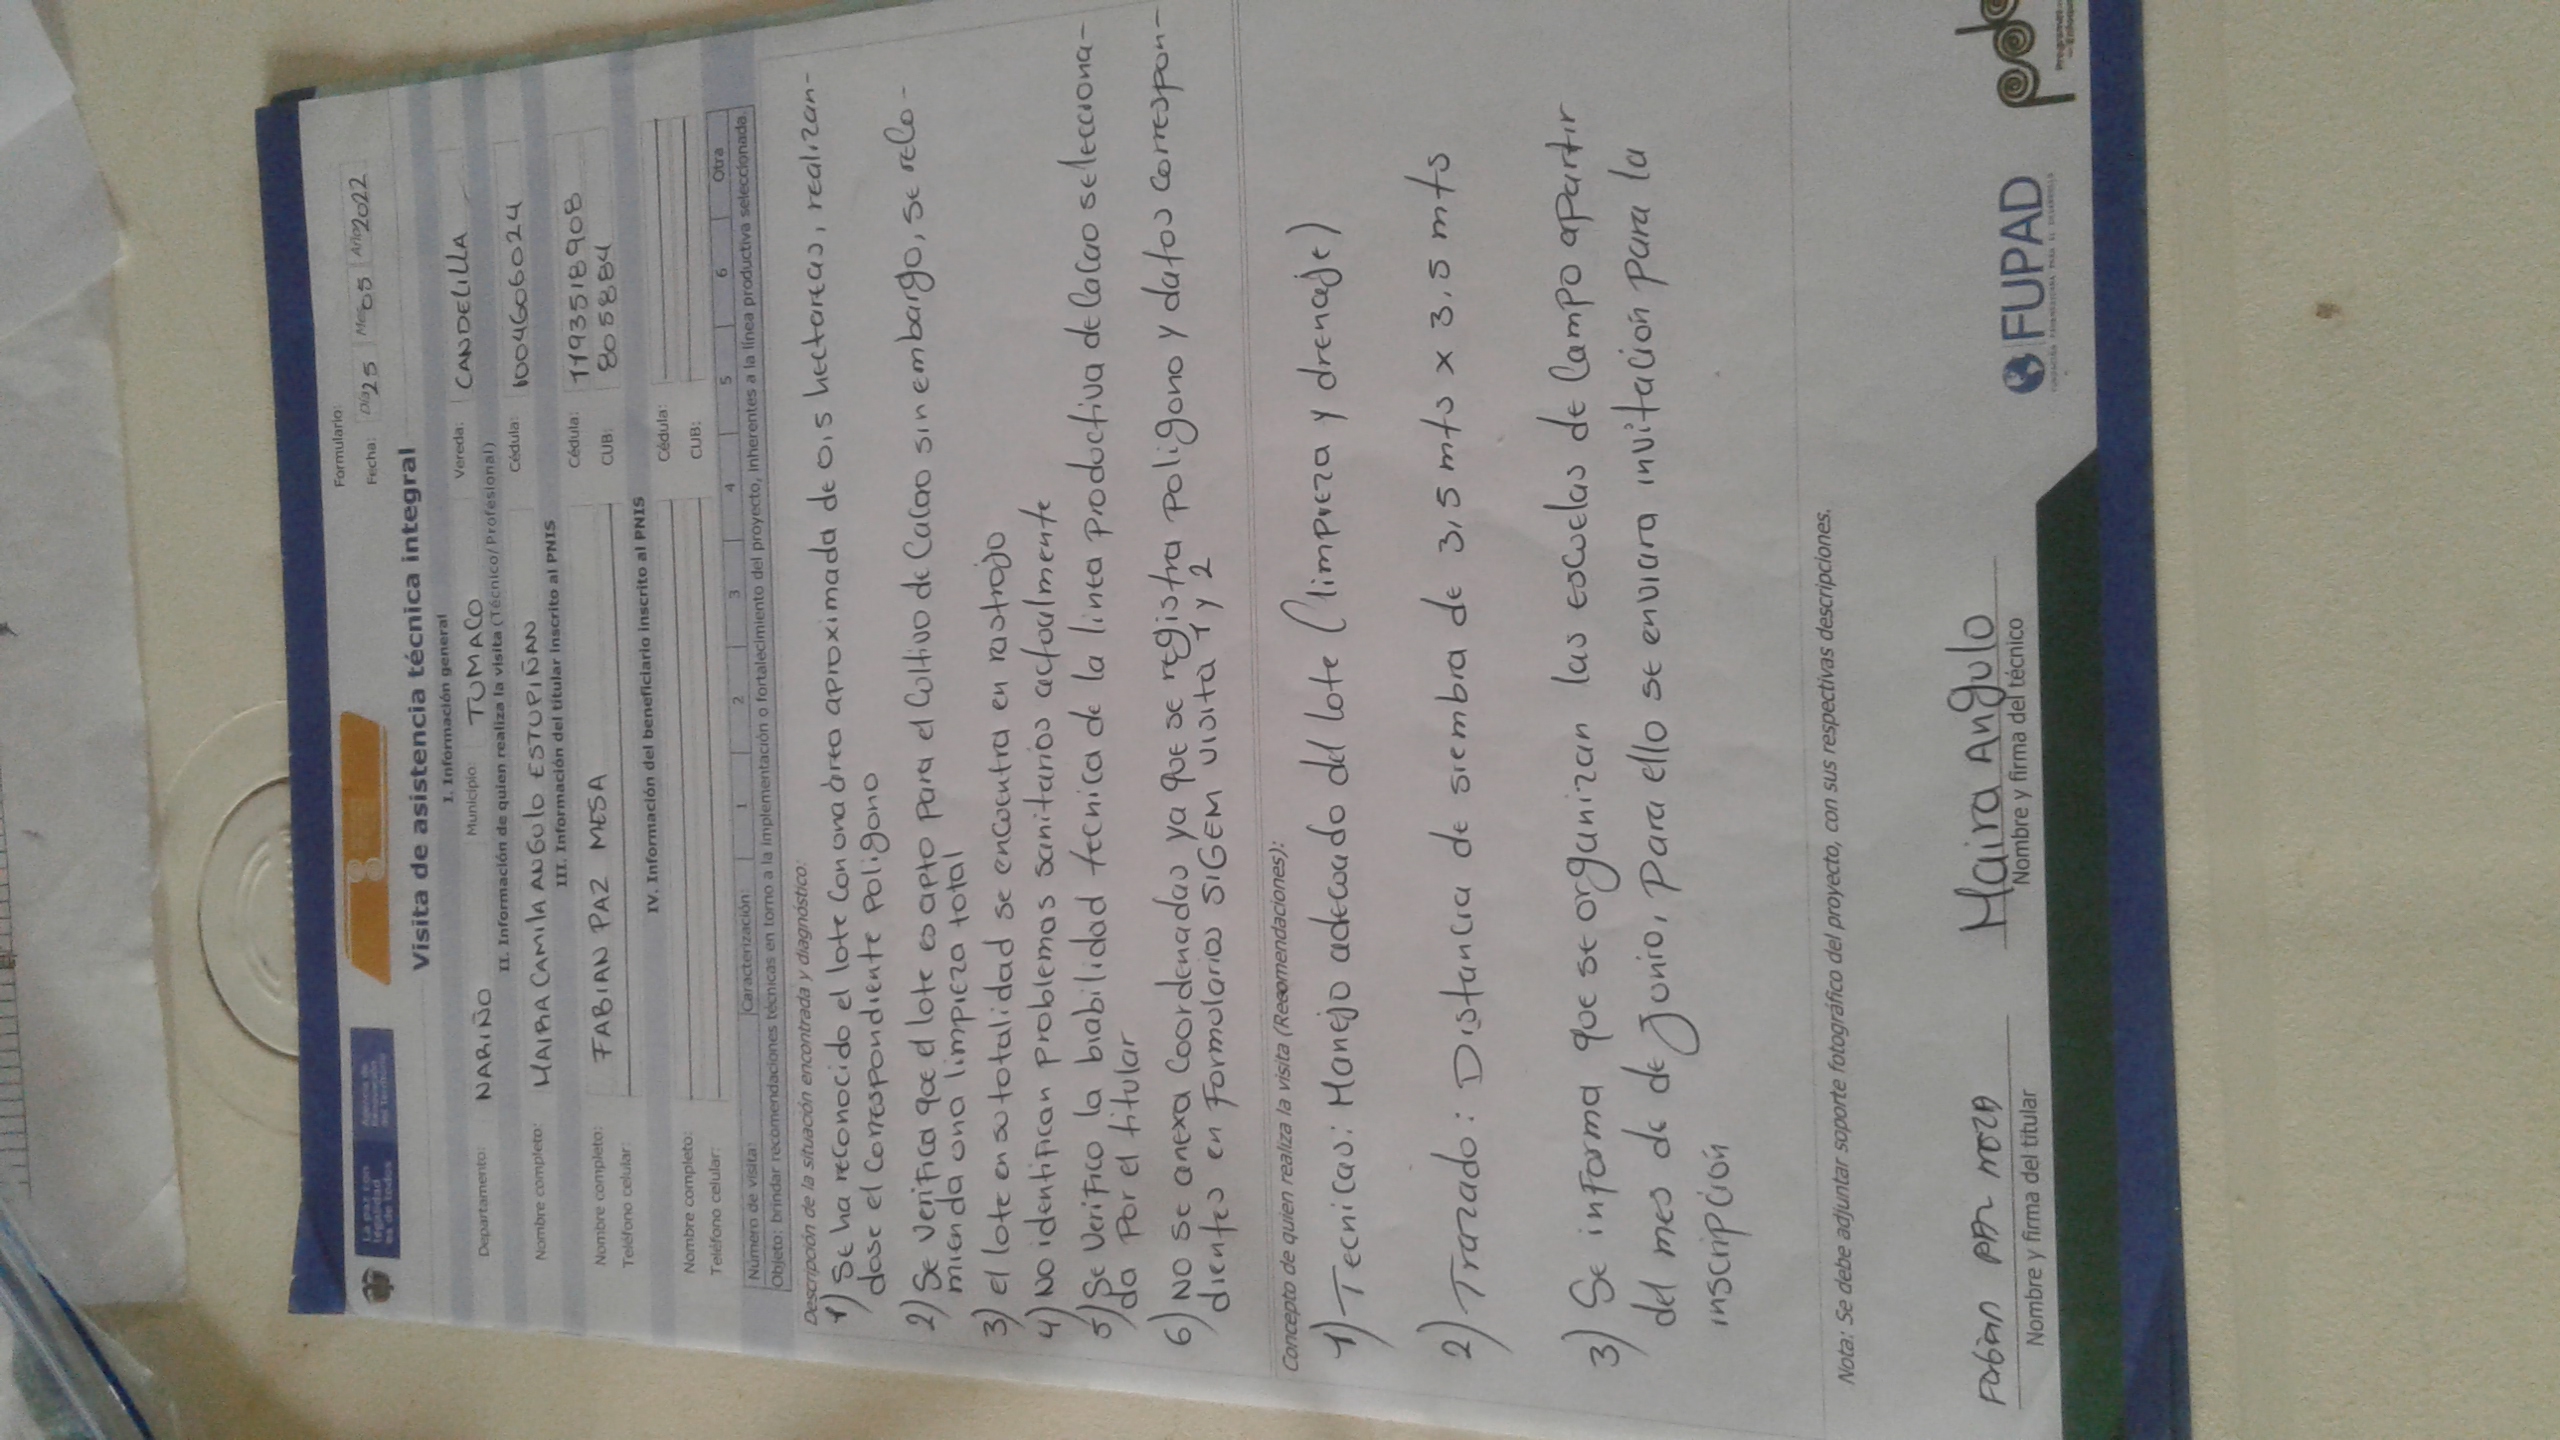 La paz con legalidad es de todos
Agencia de Renovación del Territorio
Formulario:
Fecha: Día 25 Mes 05 Año 2022
Visita de asistencia técnica integral
I. Información general
Departamento: NARIÑO Municipio: TUMACO Vereda: CANDELILLA
II. Información de quien realiza la visita (Técnico/Profesional)
Nombre completo: MAIRA CAMILA ANGULO ESTUPIÑAN Cédula: 1004606024
III. Información del titular inscrito al PNIS
Nombre completo: FABIAN PAZ MESA Cédula: 1193518908
Teléfono celular: CUB: 8058884
IV. Información del beneficiario inscrito al PNIS
Nombre completo: Cédula:
Teléfono celular: CUB:
Número de visita: Caracterización: 1 2 3 4 5 6 Otra
Objeto: brindar recomendaciones técnicas en torno a la implementación o fortalecimiento del proyecto, inherentes a la línea productiva seleccionada.
Descripción de la situación encontrada y diagnóstico:
1) Se ha reconocido el lote con una área aproximada de 01s hectareas, realizan-
dose el correspondiente poligono
2) Se verifica que el lote es apto para el cultivo de cacao sin embargo, se reco-
mienda una limpieza total
3) el lote en su totalidad se encuentra en rastrojo
4) No identifican problemas sanitarios actualmente
5) Se verifico la biabilidad tecnica de la linea productiva de cacao selecciona-
da por el titular
6) No se anexa coordenadas ya que se registra poligono y datos correspon-
dientes en formularios SIGEM visita 1 y 2
Concepto de quien realiza la visita (Recomendaciones):
1) Tecnicas: Manejo adecuado del lote (limpieza y drenaje)
2) Trazado: Distancia de siembra de 3,5 mts x 3,5 mts
3) Se informa que se organizan las escuelas de campo apartir
del mes de de Junio, para ello se enviara invitación para la
inscripción
Nota: Se debe adjuntar soporte fotográfico del proyecto, con sus respectivas descripciones.
Fabian Paz meza
Nombre y firma del titular
Maira Angulo
Nombre y firma del técnico
FUPAD